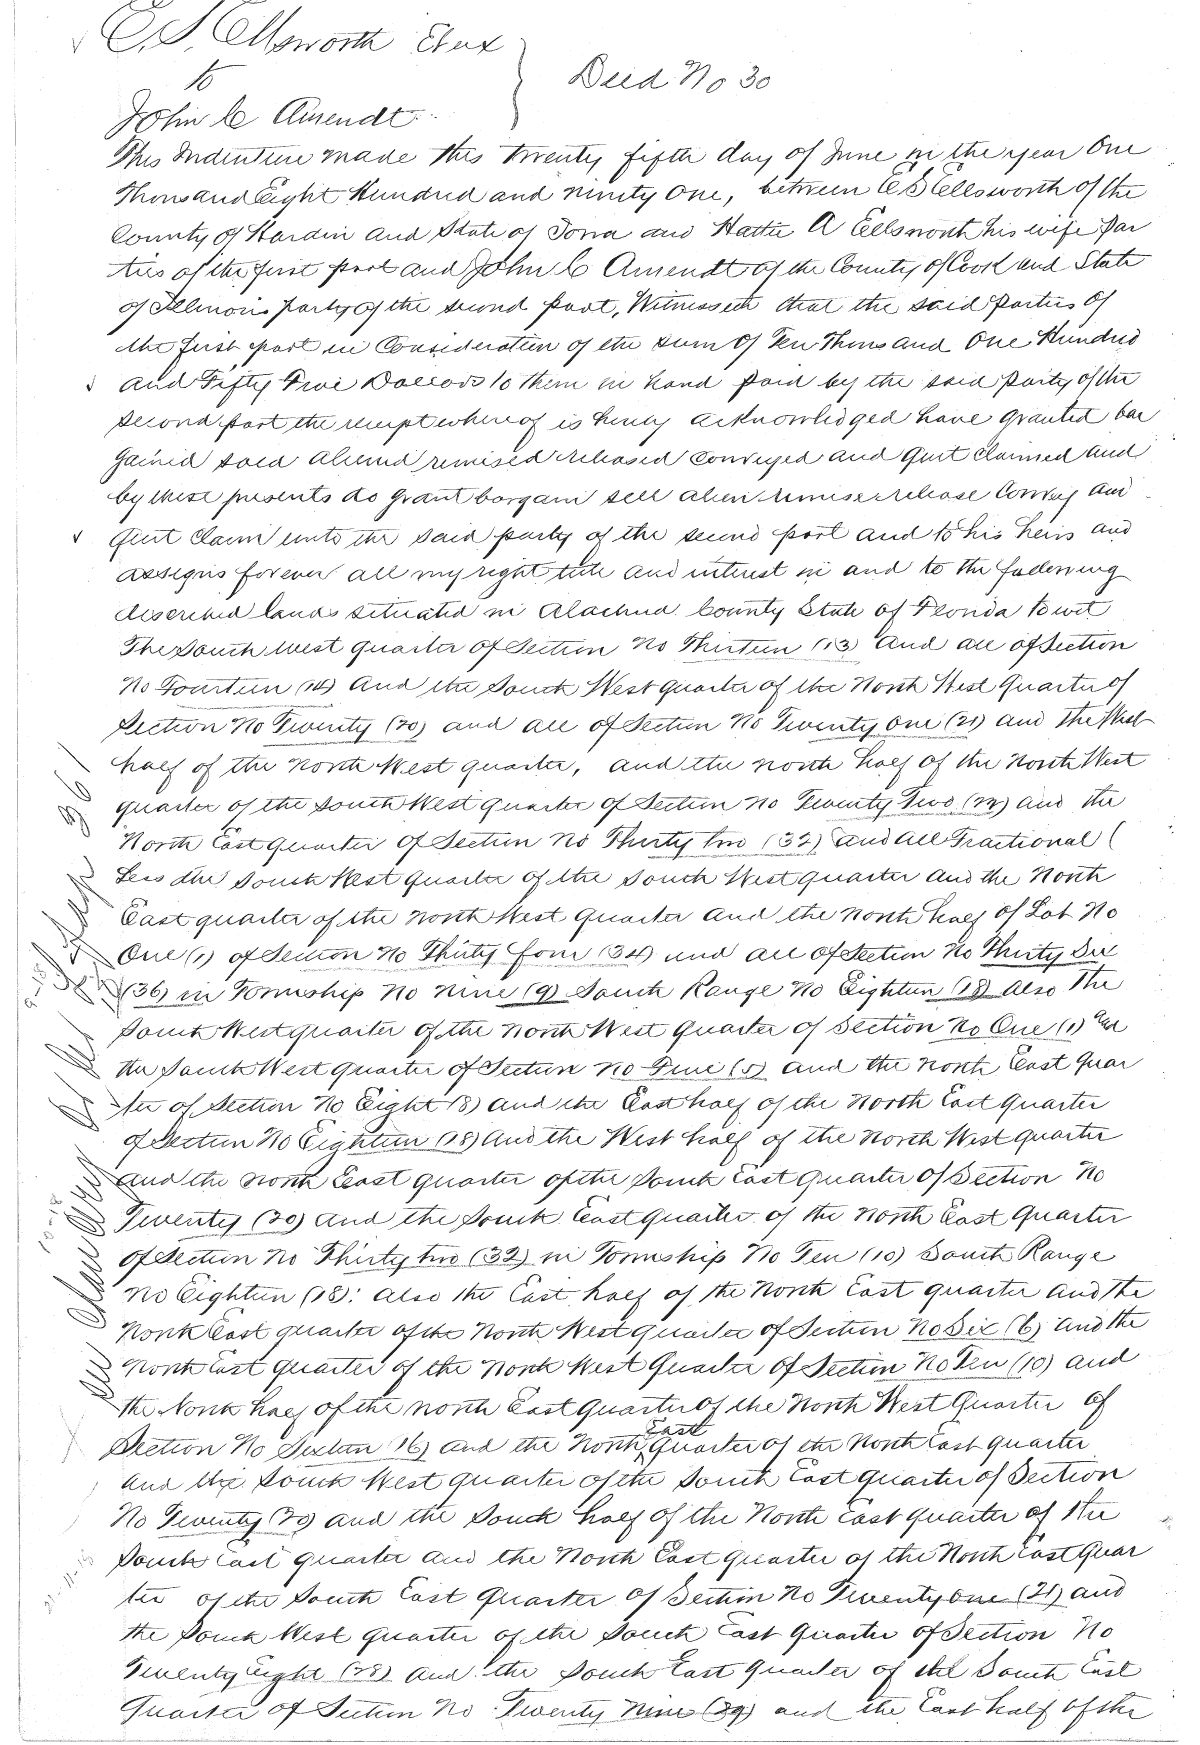 E. S. Ellsworth Etux
to
Deed No 30
John C Amendt
This Indenture made this twenty fifth day of June in the year One
Thousand Eight Hundred and ninety one, between E S Ellsworth of the
County of Hardin and State of Iowa and Hattie A Ellsworth his wife par
ties of the first part and John C Amendt of the County of Cook and State
of Illinois party of the second part, Witnesseth that the said parties of
the first part in Consideration of the sum of Ten Thousand One Hundred
and Fifty Five Dollars to them in hand paid by the said party of the
second part the receipt whereof is hereby acknowledged have granted bar
gained sold aliened remised released conveyed and quit claimed and
by these presents do grant bargain sell alien remise release Convey and
quit claim unto the said party of the second part and to his heirs and
assigns forever all my right title and interest in and to the following
described lands situated in Alachua County State of Florida to wit
The South west quarter of Section No Thirteen (13) and all of Section
No Fourteen (14) and the South West quarter of the North West Quarter of
Section No Twenty (20) and all of Section No Twenty one (21) and the West
half of the North West quarter, and the north half of the North West
quarter of the South West quarter of Section No Twenty Two (22) and the
North East quarter of Section No Thirty two (32) and all Fractional (
Less the South West quarter of the South West quarter and the North
East quarter of the North West quarter and the north half of Lot No
One (1) of Section No Thirty four (34) and all of Section No Thirty Six
(36) in Township No nine (9) South Range No Eighteen (18) Also the
South West quarter of the North West Quarter of Section No One (1) and
the South West quarter of Section No Five (5) and the North East quar
ter of Section No Eight (8) and the East half of the North East quarter
of Section No Eighteen (18) and the West half of the North West quarter
and the North East quarter of the South East quarter of Section No
Twenty (20) and the South East quarter of the North East Quarter
of Section No Thirty two (32) in Township No Ten (10) South Range
No Eighteen (18): also the East half of the North East quarter and the
North East quarter of the North West quarter of Section No Six (6) and the
North East quarter of the North West Quarter of Section No Ten (10) and
the North half of the north East quarter of the North West Quarter of
Section No Sixteen (16) and the North East quarter of the North East quarter
and the South West quarter of the South East quarter of Section
No Twenty (20) and the South half of the North East quarter of the
South East quarter and the North East quarter of the North East Quar
ter of the South East Quarter of Section No Twenty one (21) and
the South West quarter of the South East Quarter of Section No
Twenty Eight (28) and the South East quarter of the South East
Quarter of Section No Twenty Nine (29) and the East half of the